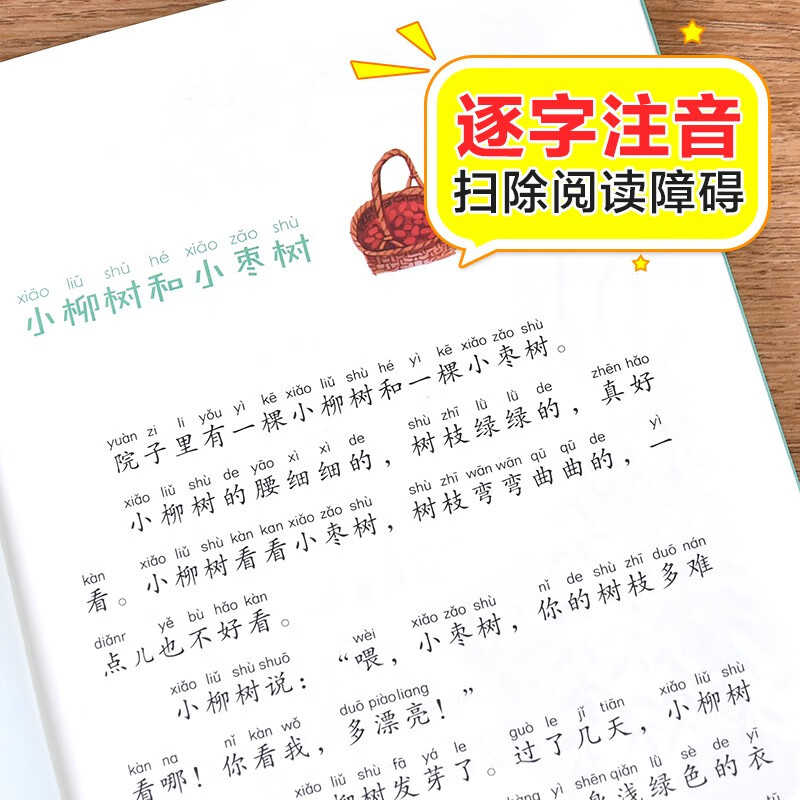 逐字注音
扫除阅读障碍
xiǎo liǔ shù hé xiǎo zǎo shù
小柳树和小枣树
yuàn zi li yǒu yì kē xiǎo liǔ shù hé yì kē xiǎo zǎo shù
院子里有一棵小柳树和一棵小枣树。
xiǎo liǔ shù de yāo xì xì de shù zhī lǜ lǜ de zhēn hǎo
小柳树的腰细细的，树枝绿绿的，真好
kàn xiǎo liǔ shù kàn kan xiǎo zǎo shù shù zhī wān wān qū qū de yì
看。小柳树看看小枣树，树枝弯弯曲曲的，一
diǎnr yě bù hǎo kàn
点儿也不好看。
xiǎo liǔ shù shuō wèi xiǎo zǎo shù nǐ de shù zhī duō nán
小柳树说：“喂，小枣树，你的树枝多难
kàn na nǐ kàn wǒ duō piào liang
看哪！你看我，多漂亮！”
xiǎo liǔ shù fā yá le guò le jǐ tiān xiǎo liǔ shù
柳树发芽了。过了几天，小柳树
yì shēn qiǎn lǜ sè de yī
身浅绿色的衣